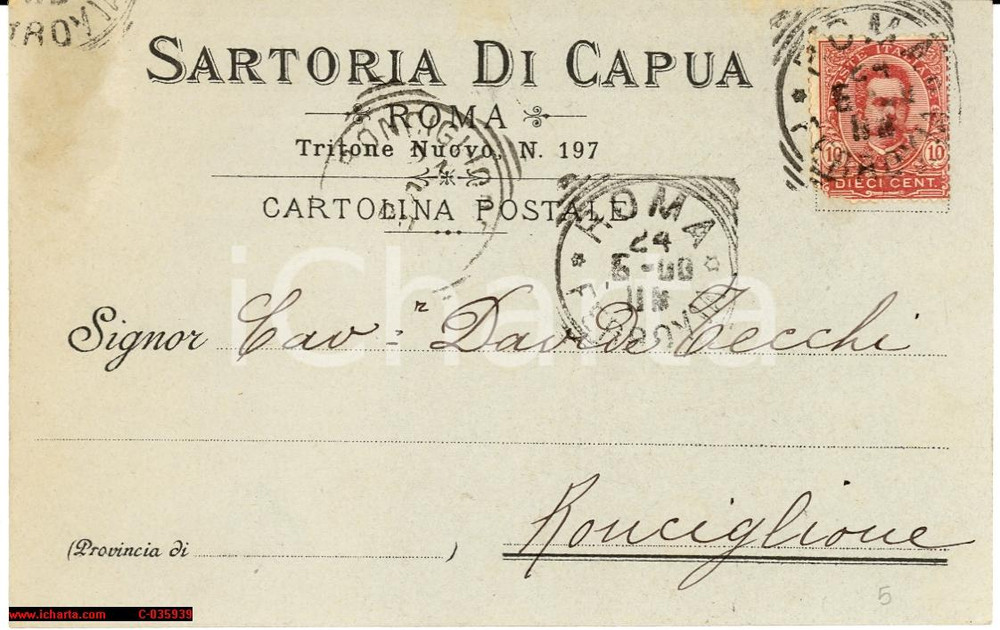 SARTORIA DI CAPUA
ROMA
Tritone Nuovo, N. 197
CARTOLINA POSTALE
POSTE ITALIANE
10 10
DIECI CENT.
ROMA
24
ROMA
24
5-00
RONCIGLIONE
iCharta
Signor Cav.r Davide Tecchi
Ronciglione
(Provincia di )
5
www.icharta.com C-035939